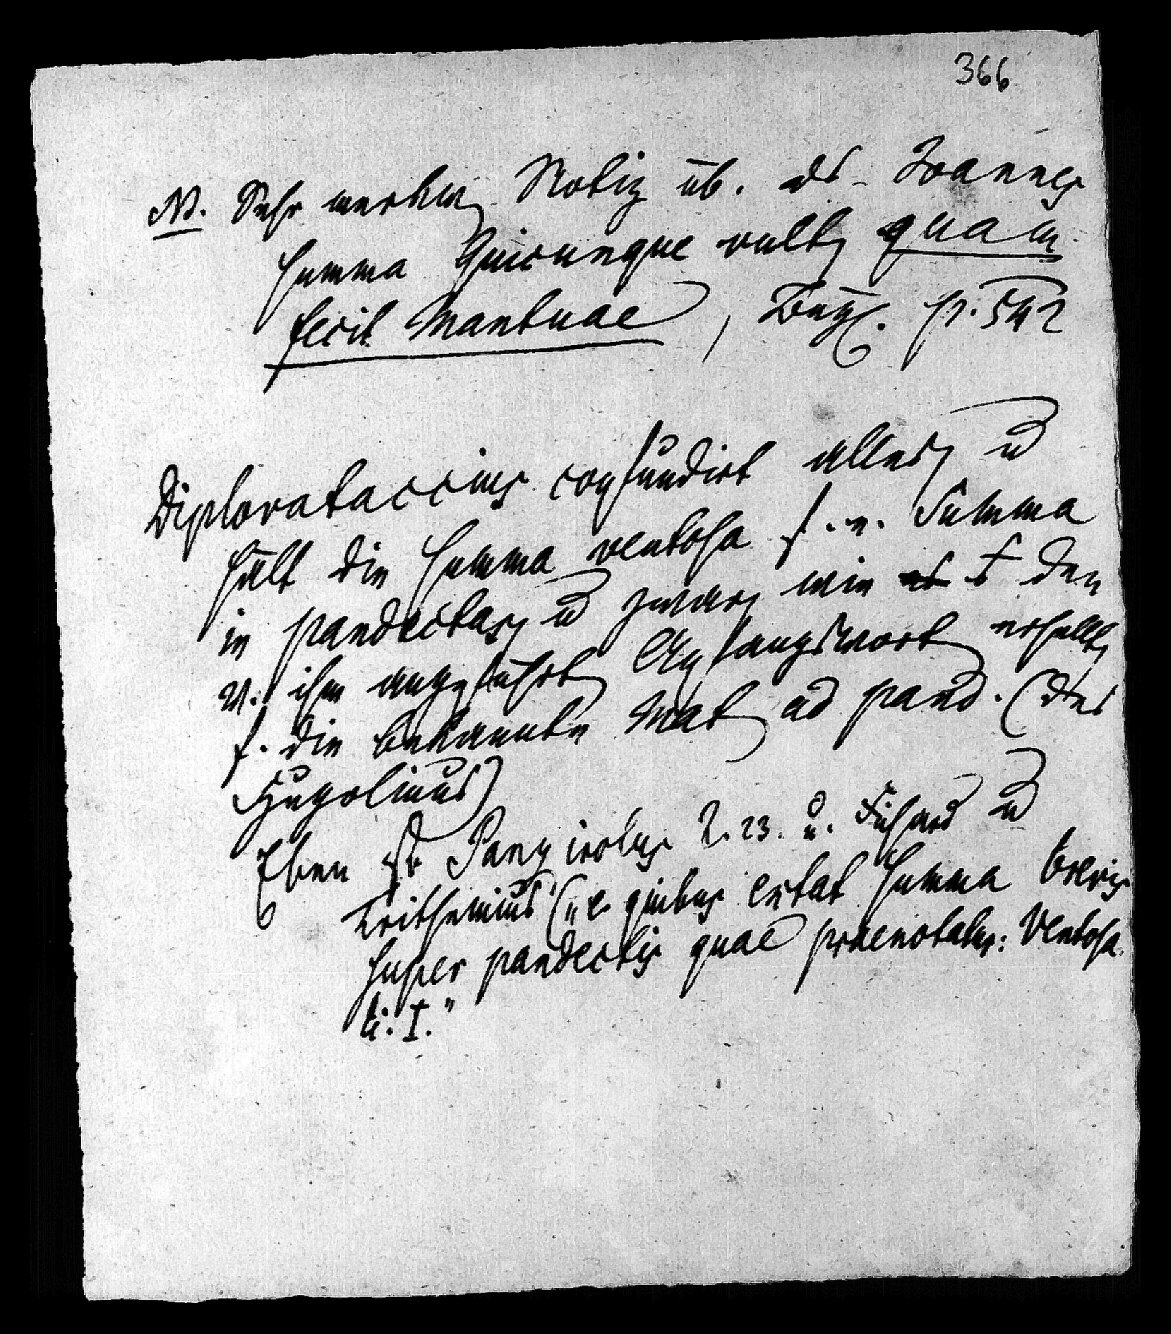 366
NB. Sehr merkw. Notiz üb. ds. Joannes
Summa Quicunque vult, quam
fecit Mantuae, p. 542
Diplovataccius confundirt alles, u
hält die Summa ventosa f. e. Summa
in pandectas, u zwar, wie den
v. ihm angeführt Anfangswort erhellt,
f. die bekannte Mat ad pand. (des
Hugolinus)
Eben so Panzirolus 2. 23. u. Fichard u
Trithemius („e quibus extat Summa brevis
super pandectis quae praenotatur: Ventosa.
li. I."